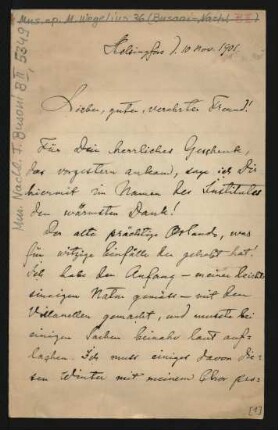 Mus. ep. M. Wegelius 36 (Busoni-Nachl. B II)
Mus. Nachl. F. Busoni B II, 5349
Helsingfors d. 10 Nov. 1901.
Lieber, guter, verehrter Freund!
Für Dein herrliches Geschenk,
das vorgestern ankam, sage ich Dir
hiermit im Namen des Institutes
den wärmsten Dank!
Der alte prächtige Orlando, was
für witzige Einfälle der gehabt hat!
Ich habe den Anfang – meiner leicht-
sinnigen Natur gemäss – mit den
Villanellen gemacht, und musste bei
einigen Sachen beinahe laut auf-
lachen. Ich muss einiges davon die-
sen Winter mit meinem Chor pro-
[1]